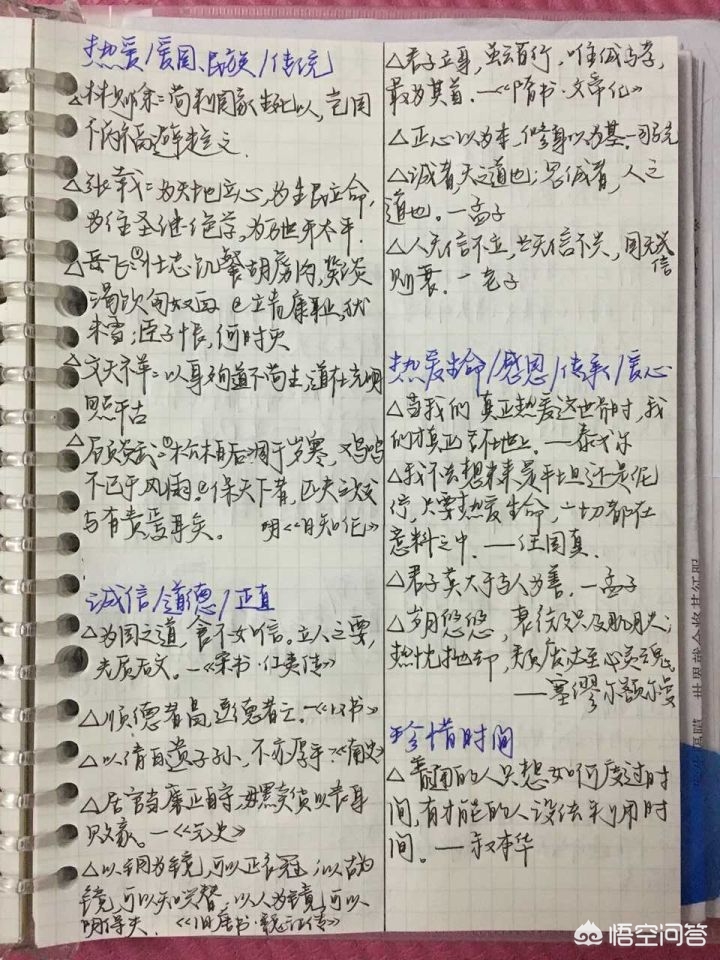 热爱/爱国、民族/传统
△林则徐：苟利国家生死以，岂因
不因祸福避趋之
△张载：为天地立心，为生民立命，
为往圣继绝学，为万世开太平.
△岳飞：①壮志饥餐胡虏肉，笑谈
渴饮匈奴血 ②靖康耻，犹
未雪；臣子恨，何时灭
△文天祥：以身殉道不苟生，道在光明
照千古
△顾炎武：①松柏后凋于岁寒，鸡鸣
不已于风雨②保天下者，匹夫之贱
与有责焉耳矣。 明《日知录》
诚信/道德/正直
△为国之道，食不如信。立人之要，
先质后文。—《宋书·江夷传》
△顺德者昌，逆德者亡。—《汉书》
△以清白遗子孙，不亦厚乎？《南史》
△居官当廉正自守，毋黩货以丧身
败家。—《元史》
△以铜为镜，可以正衣冠；以古为
镜，可以知兴替，以人为镜，可以
明得失. 《旧唐书·魏征传》
△君子立身，虽云百行，唯诚与孝，
最为其首. —《隋书·文帝纪》
△正心以为本，修身以为基.
△诚者，天之道也；思诚者，人之
道也。—孟子
△人无信不立，业无信不兴，国无诚信
则衰. —老子
热爱生命/感恩/传承/爱心
△当我们真正热爱这世界时，我
们才真正活在世上. —泰戈尔
△我不去想未来是平坦还是泥
泞，只要热爱生命，一切都在
意料之中. —汪国真.
△君子莫大于与人为善. —孟子
△岁月悠悠，衰微只及肌肤；
热忱抛却，颓废必至心灵.
—塞缪尔·厄尔曼
珍惜时间
△普通的人只想如何度过时
间，有才能的人设法利用时
间。—叔本华
悟空问答